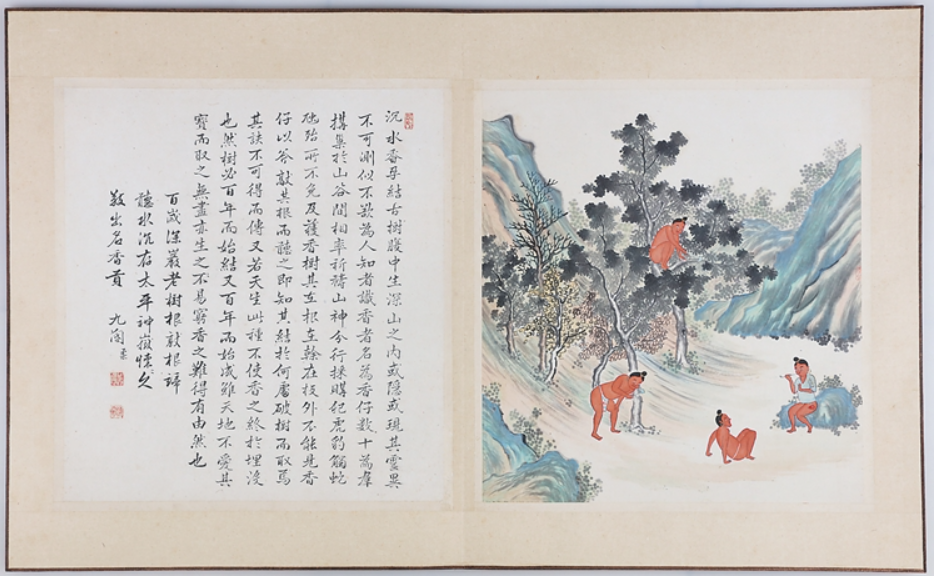 沉水香孕結古樹腹中生深山之內或隱或現其靈異
不可測似不欲為人知者識香者名為香仔數十為羣
搆巢於山谷間相率祈禱山神分行採購犯虎豹觸蛇
虺殆所不免及獲香樹其在根在幹在枝外不能見香
仔以斧敲其根而聽之即知其結於何處破樹而取焉
其訣不可得而傳又若天生此種不使香之終於埋沒
也然樹必百年而始結又百年而始成雖天地不愛其
寶而取之無盡亦生之不易窮香之難得有由然也
百歲深巖老樹根敲根諦
聽水沉存太平神嶽懷久
敬出名香貢 九閽